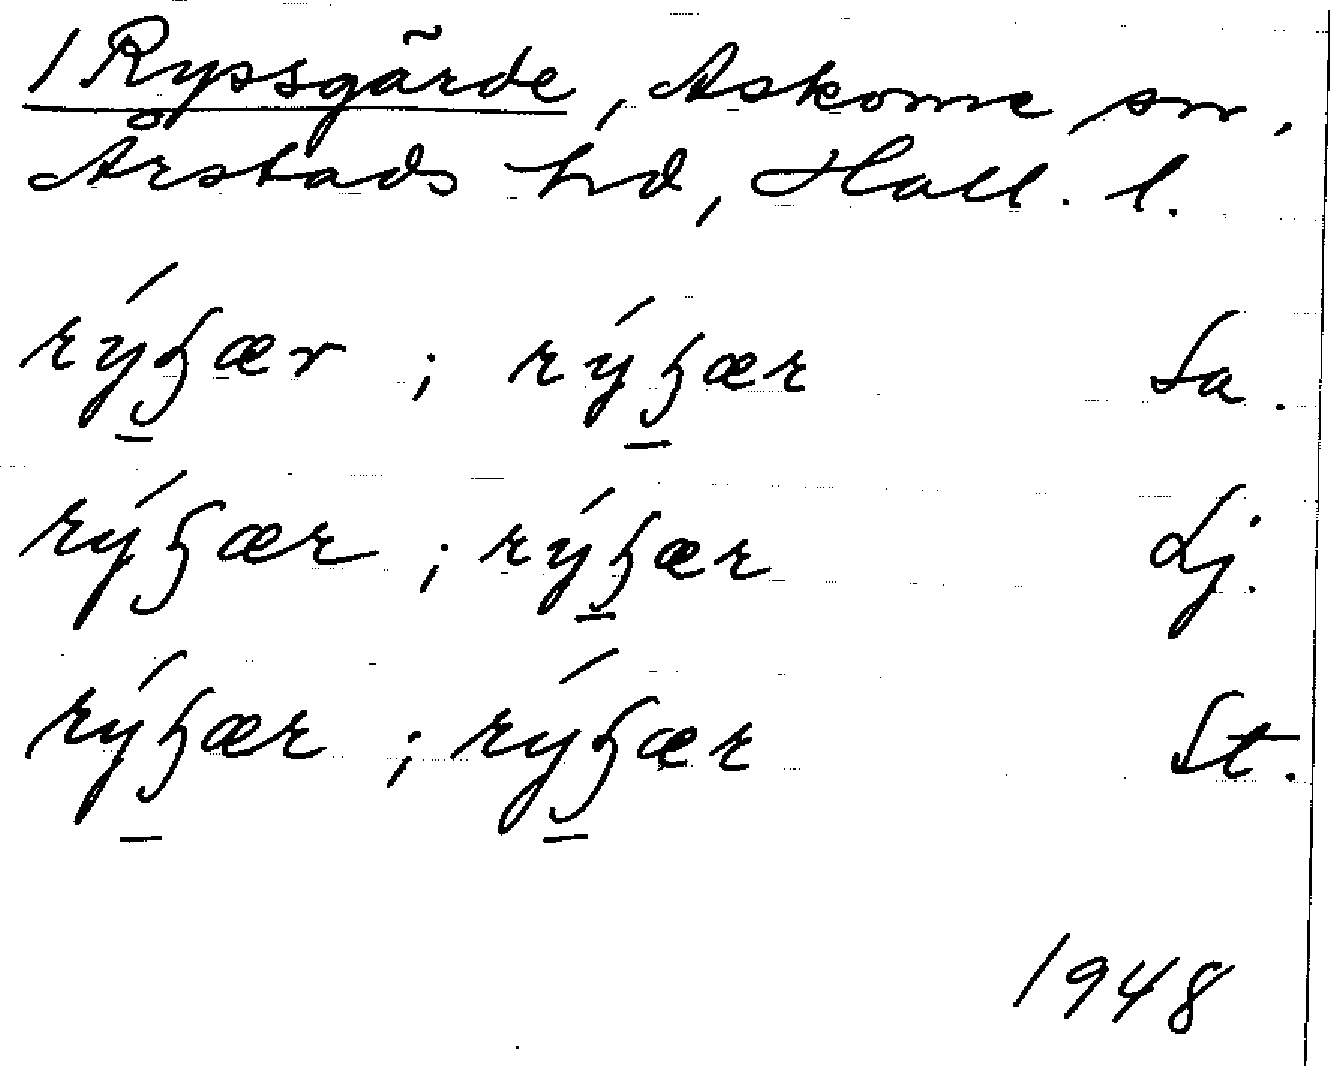 1 Ryssgärde, Askome sn,
Årstads hd, Hall. l.
rýʒær ; rýʒær Sa.
rýʒær ; rýʒær Lj.
rýʒær ; rýʒær St.
1948